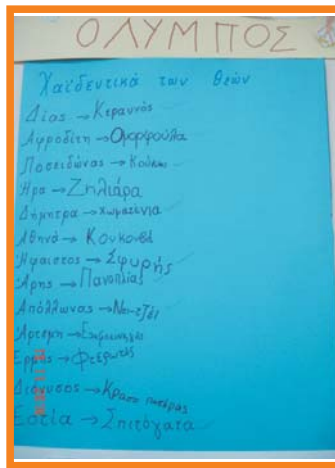 ΟΛΥΜΠΟΣ
Χαϊδευτικά των θεών
Δίας → Κεραυνός
Αφροδίτη → Ομορφούλα
Ποσειδώνας →
Ήρα → Ζηλιάρα
Δήμητρα → Χωματένια
Αθηνά →
Ήφαιστος → Σφυρής
Άρης → Πανοπλίας
Απόλλωνας →
Άρτεμη →
Ερμής → Φτερωτός
Διόνυσος → Κρασοπατέρας
Εστία → Σπιτόγατα